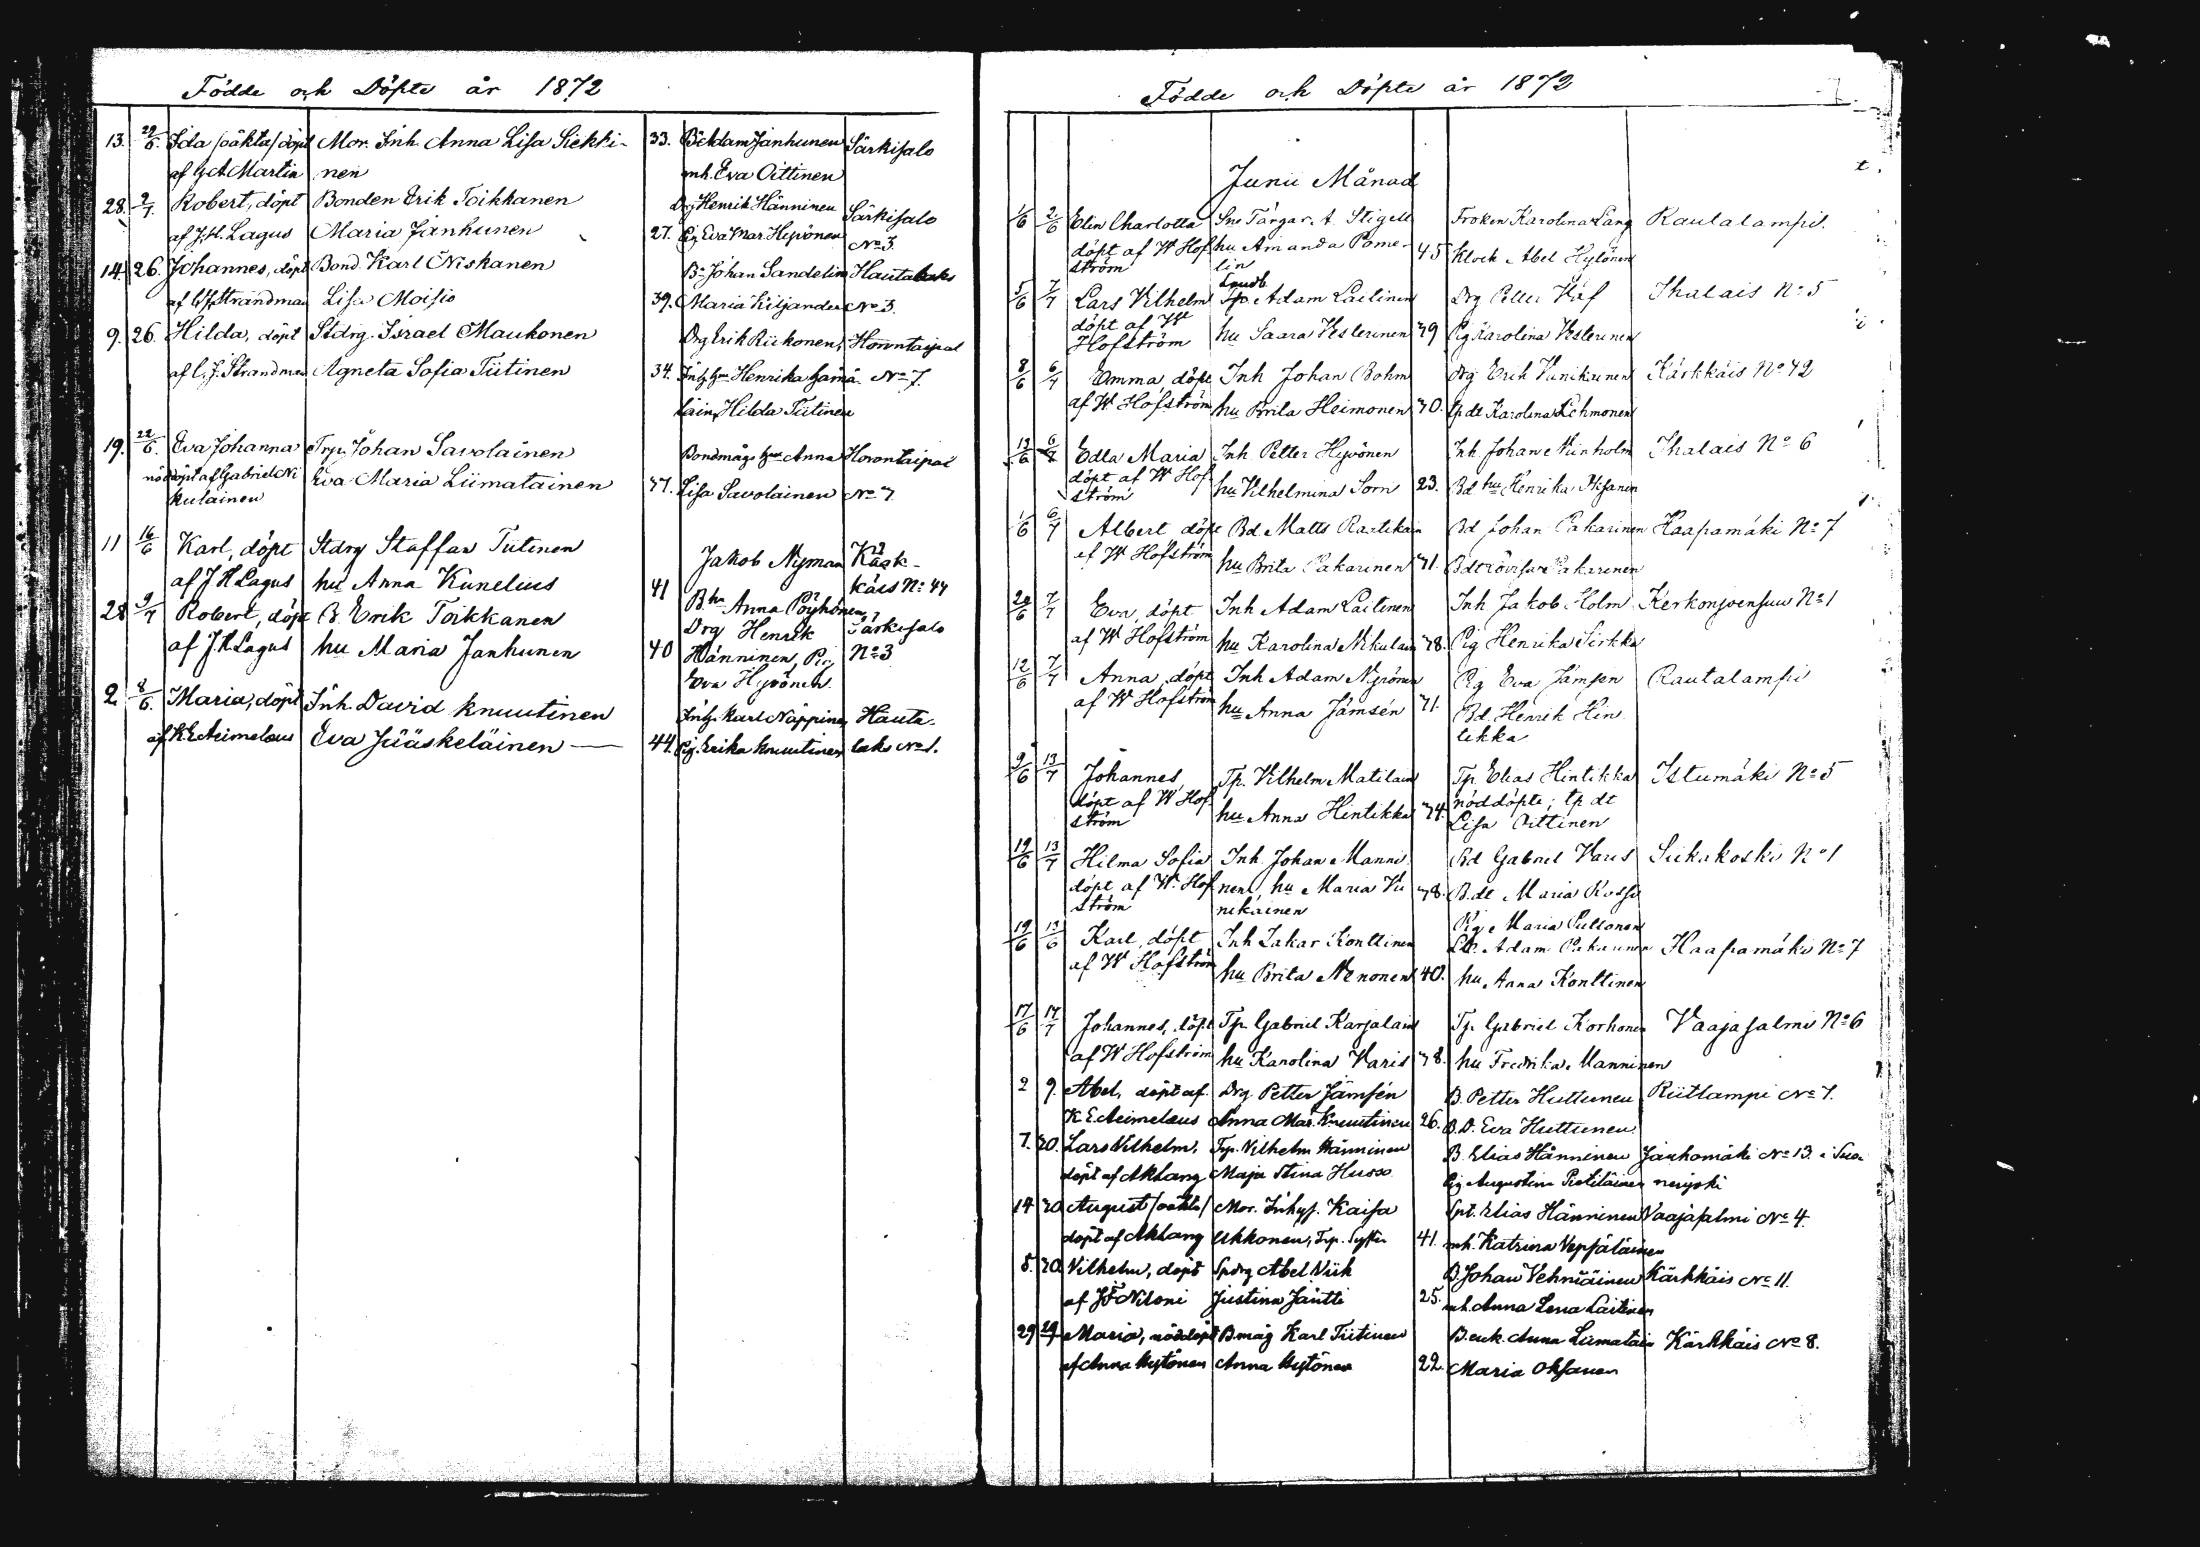 Födde och Döpte år 1872
13. 29/6. Ida /oäkta/ döpt Mor. Inh. Anna Lisa Siekki- 33. B. Adam Janhunen Särkisalo
af G A Martin nen mh. Eva Oittinen
28. 2/7. Robert, döpt Bonden Erik Toikkanen Drg Henrik Hänninen Särkisalo
af J. H. Lagus Maria Janhunen 27. Pig Eva Mar. Hyvönen No 3.
14. 26. Johannes, döpt Bond. Karl Niskanen Bn Johan Sandelin Hautalaks
af C. J. Strandman Lisa Moisio 39. Maria Kiljander No 3.
9. 26. Hilda, döpt Stdrg. Israel Maukonen Drg Erik Riekonen, Honntaipal
af C. J. Strandman Agneta Sofia Tiitinen 34. Henrika Hämä- No 7.
läin, Hilda Tiitinen
19. 22/6. Eva Johanna Trp. Johan Savolainen Bondmågs hu Anna Horontaipal
nöddöpt af Gabriel Ni Eva Maria Liimatainen 37. Lisa Savolainen No 7
kulainen
11 16/6 Karl, döpt Stdrg Staffan Tiitinen Jakob Nyman Kärk-
af J H Lagus hu Anna Kunelius 41 Bhu Anna Pöyhönen käis No 44
28 9/7 Robert, döpt B. Erik Toikkanen Drg Henrik Särkisalo
af J. H. Lagus hu Maria Janhunen 40 Hänninen, Pig No 3
Eva Hyvönen.
2 8/6. Maria, döpt Inh. David Knuutinen Inh. Karl Näppinen Hauta-
af K E Aeimelæus Eva Jääskeläinen — 44. Pig. Erika Knuutinen laks No 1.
Födde och Döpte år 1872
Junii Månad
1/6 2/6 Elin Charlotta Sne Färgar. A. Stigell Fröken Karolina Lang Rautalampi.
döpt af W Hof hu Amanda Pome- 45 Klock Abel Hytönen
ström lin
5/6 7/7 Lars Vilhelm Adam Laitinen Drg Petter Käf Ihalais No 5
döpt af W hu Saara Vesterinen 39 Pig Karolina Vesterinen
Hofström
8/6 6/7 Emma, döpt Inh Johan Bohm Drg Erik Vanikainen Kärkkäis No 42
af W Hofström hu Brita Heimonen 30. tp dt Karolina Lehmonen
12/6 6/7 Edla Maria Inh Petter Hyvönen Inh. Johan Ninholm Ihalais No 6
döpt af W Hof hu Vilhelmina Sorn 23. Bd hu Henrika Piisanen
ström
1/6 6/7 Albert döpt Bd Matts Rautikain Bd Johan Pakarinen Haapamäki No 7
af W Hofström hu Brita Pakarinen 31. Pakarinen
20/6 7/7 Eva, döpt Inh Adam Laitinen Inh Jakob Holm Kerkonjoensuu No 1
af W Hofström hu Karolina Nikulain 38. Pig Henrika Sirkka
12/6 7/7 Anna, döpt Inh Adam Nyrönen Pig Eva Jämsen Rautalampi
af W Hofström hu Anna Jämsén 31. Bd. Henrik Hin
tikka
9/6 13/7 Johannes, Tp. Vilhelm Matilain Tp. Elias Hintikka Istumäki No 5
döpt af W Hof hu Anna Hintikka 34. nöddöpte; tp dt
ström Lisa Oittinen
19/6 13/7 Hilma Sofia Inh. Johan Manni Bd Gabriel Varis Siikakoski No 1
döpt af W. Hof nen, hu Maria Vii 38. B. dt Maria Rossi
ström nikainen
Pig Maria Puttonen
19/6 13/6 Karl, döpt Inh Zakar Konttinen Adam Pakarinen Haapamäki No 7
af W Hofström hu Brita Nenonen 40. hu Anna Konttinen
17/6 14/7 Johannes, döpt Tp. Gabriel Karjalain Tp. Gabriel Korhonen Vaajasalmi No 6
af W Hofström hu Karolina Varis 38. hu Fredrika Manninen
2 9. Abel, döpt af Drg. Petter Jämsén B. Petter Huttunen Riitlampi No 7.
K. E. Aeimelæus Anna Mar. Knuutinen 26. B. D. Eva Huttunen.
7. 20. Lars Vilhelm, Trp. Vilhelm Hänninen B. Elias Hänninen Jauhomäki No 13. i Suo-
döpt af A K Lang Maja Stina Husso Pig Augustina Pietiläinen nenjoki
14 20 August /oäkta/ Mor. Inhys. Kaisa Spt. Elias Hänninen Vaajasalmi No 4.
döpt af A K Lang Ukkonen, Trp. Sytter 41. mh. Katrina Vepsäläinen
5. 20 Vilhelm, döpt Spdrg Abel Niik B. Johan Vehniäinen Kärkkäis No 11.
af J F Niloni Justina Jäntti 25. mh. Anna Lena Laitinen
29 29/7 Maria, nöddöpt B. måg Karl Tiitinen B. enk. Anna Liimatain Kärkkäis No 8.
af Anna Hytönen Anna Hytönen 22. Maria Oksanen